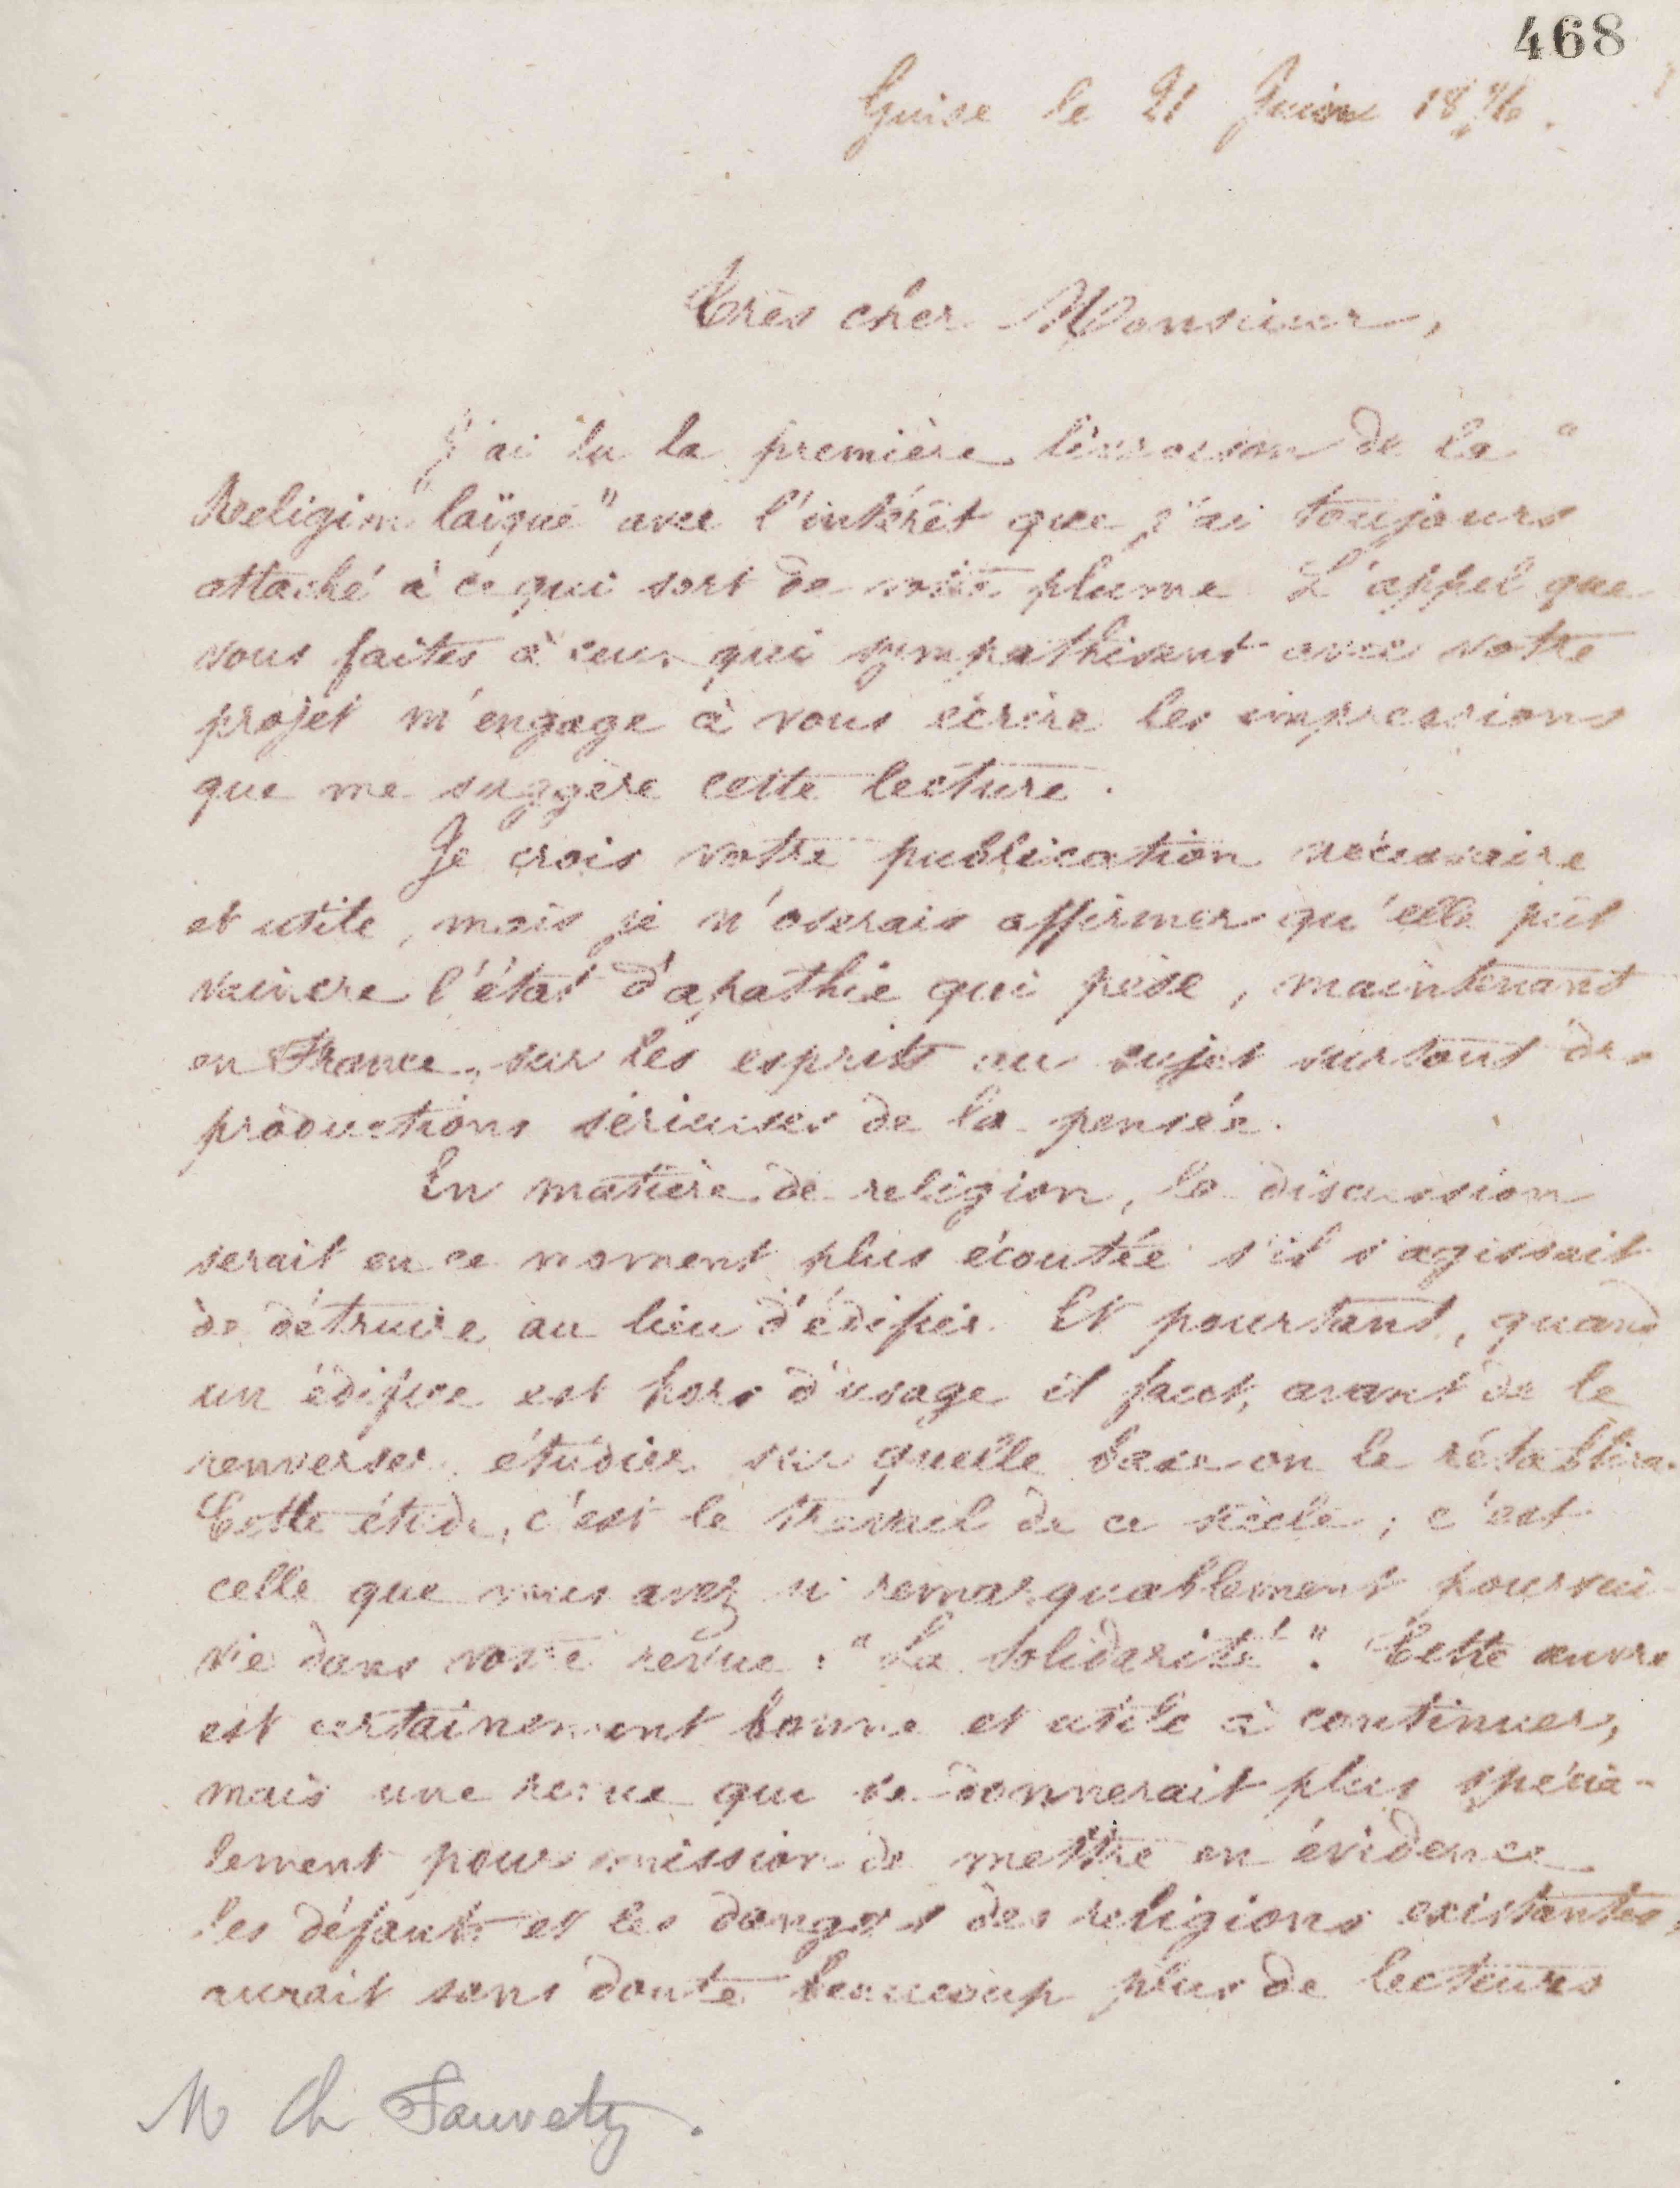 468
Guise le 21 Juin 1876.
Très cher Monsieur,
J'ai lu la première livraison de la "
Religion laïque" avec l'intérêt que j'ai toujours
attaché à ce qui sort de votre plume. L'appel que
vous faites à ceux qui sympathisent avec votre
projet m'engage à vous écrire les impressions
que me suggère cette lecture.
Je crois votre publication nécessaire
et utile, mais je n'oserais affirmer qu'elle pût
vaincre l'état d'apathie qui pèse, maintenant
en France, sur les esprits au sujet surtout des
productions sérieuses de la pensée.
En matière de religion, la discussion
serait en ce moment plus écoutée s'il s'agissait
de détruire au lieu d'édifier. Et pourtant, quand
un édifice est hors d'usage il faut, avant de le
renverser, étudier sur quelle base on le rétablira.
Cette étude, c'est le travail de ce siècle; c'est
celle que vous avez si remarquablement poursui
vie dans votre revue: "La Solidarité". Cette œuvre
est certainement bonne et utile à continuer,
mais une revue qui se donnerait plus spécia-
lement pour mission de mettre en évidence
les défauts et les dangers des religions existantes,
aurait sans doute beaucoup plus de lecteurs
M Ch Fauvety.